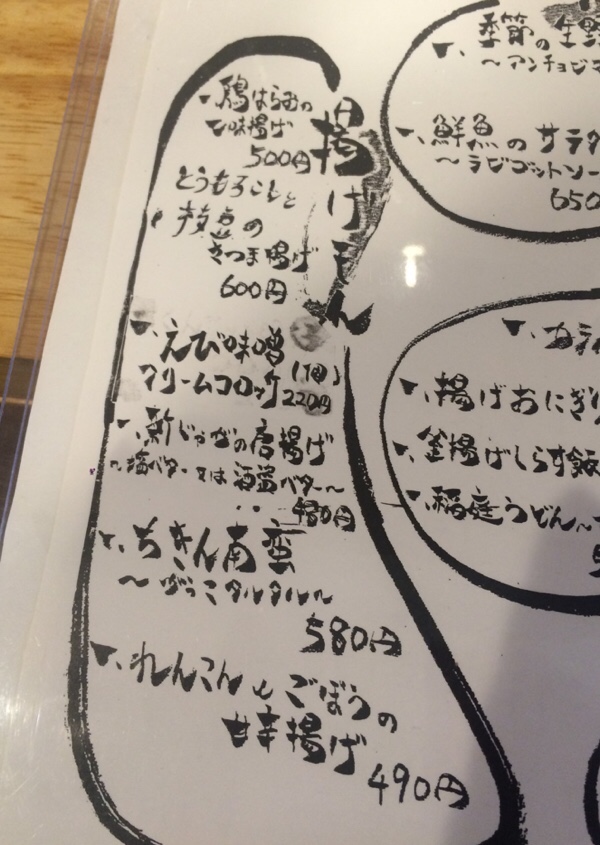 揚げもん
・鶏はらみの
一味揚げ
500円
とうもろこしと
枝豆の
さつま揚げ
600円
・えび味噌
クリームコロッケ(1個)
220円
・新じゃがの唐揚げ
～塩バター又は酒盗バター～
480円
・ちきん南蛮
～がっこタルタル
580円
・れんこんとごぼうの
甘辛揚げ
490円
季節の生野
～アンチョビマ
・鮮魚のサラダ
～ラビゴットソー
650
・揚げおにぎり
・釜揚げしらす飯
・稲庭うどん～